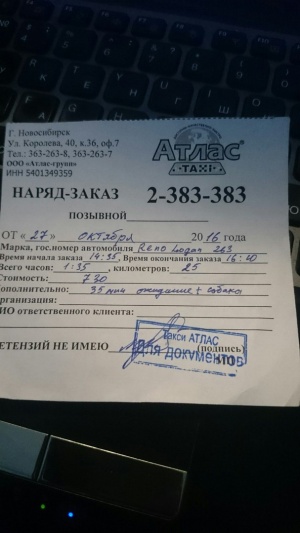 г. Новосибирск
Ул. Королева, 40, к.36, оф.7
Тел.: 363-263-8, 363-263-7
ООО «Атлас-групп»
ИНН 5401349359
Атлас
-TAXI-
НАРЯД-ЗАКАЗ 2-383-383
ПОЗЫВНОЙ
ОТ « 27 » октября 2016 года
Марка, гос.номер автомобиля Reno Logan 263
Время начала заказа 14:35, Время окончания заказа 16:10
Всего часов: 1:35, километров: 25
Стоимость: 730
Дополнительно: 35 мин ожидание + собака
Организация:
ФИО ответственного клиента:
ПРЕТЕНЗИЙ НЕ ИМЕЮ (подпись)
такси АТЛАС
ДЛЯ ДОКУМЕНТОВ